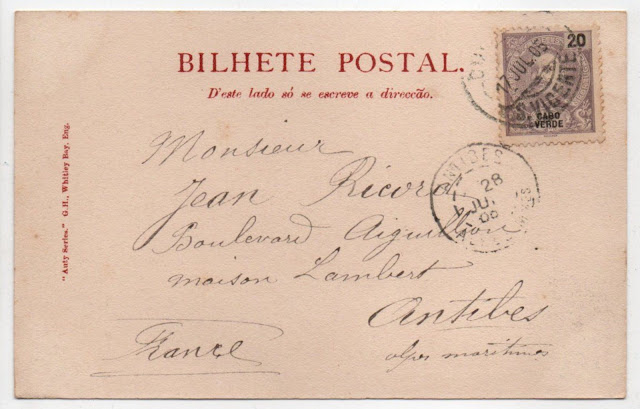 BILHETE POSTAL.
D'este lado só se escreve a direcção.
20
CABO
VERDE
17 JUL 05
S. VICENTE
ANTIBES
28
JUL
05
Monsieur
Jean Ricord
Boulevard Aiguillon
maison Lambert
Antibes
alpes maritimes
France
"Auty Series." G.H., Whitley Bay, Eng.